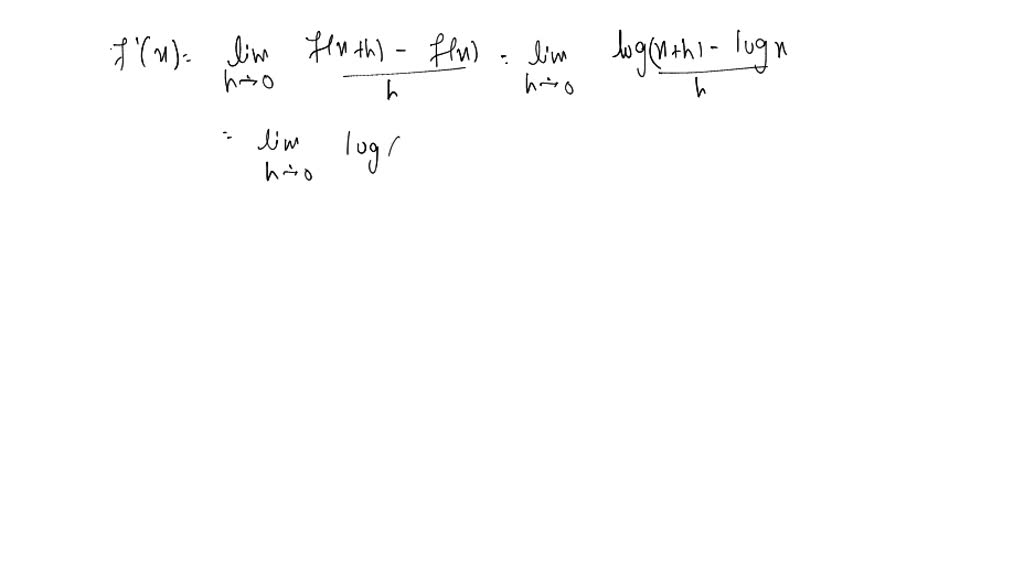 f'(x) = lim h→0 f(x+h) - f(x) / h = lim h→0 log(x+h) - log x / h
= lim h→0 log(